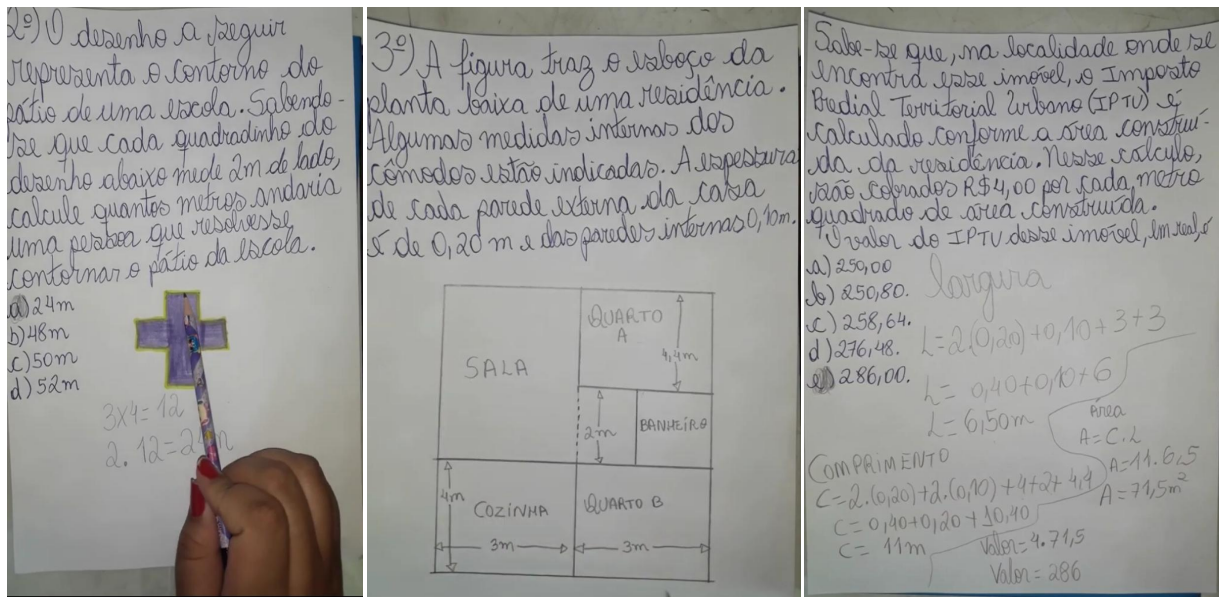 2º) O desenho a seguir
representa o contorno do
pátio de uma escola. Sabendo-
se que cada quadradinho do
desenho abaixo mede 2m de lado,
calcule quantos metros andaria
uma pessoa que resolvesse
contornar o pátio da escola.
a) 24m
b) 48m
c) 50m
d) 52m
3x4=12
2.12=24m
3º) A figura traz o esboço da
planta baixa de uma residência.
Algumas medidas internas dos
cômodos estão indicadas. A espessura
de cada parede externa da casa
é de 0,20 m e das paredes internas 0,10m.
QUARTO
A
4,4m
SALA
2m
BANHEIRO
4m
COZINHA
QUARTO B
3m
3m
Sabe-se que, na localidade onde se
encontra esse imóvel, o Imposto
Predial Territorial Urbano (IPTU) é
calculado conforme a área construí-
da da residência. Nesse cálculo,
são cobrados R$4,00 por cada metro
quadrado de área construída.
O valor do IPTU desse imóvel, em real, é
a) 250,00
b) 250,80.
c) 258,64.
d) 276,48.
e) 286,00.
largura
L=2.(0,20)+0,10+3+3
L= 0,40+0,10+6
L= 6,50m
Área
A=C.L
A=11.6,5
A=71,5m²
COMPRIMENTO
C=2.(0,20)+2.(0,10)+4+2+4,4
C=0,40+0,20+10,40
C= 11m
Valor=4.71,5
Valor=286